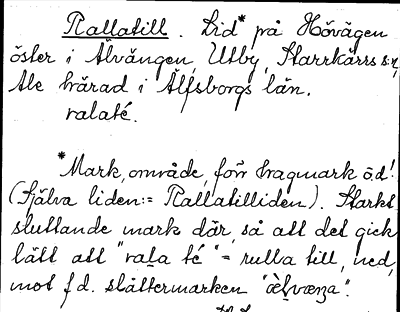 Rallatill. Lid* på Hövägen
öster i Älvängen, Utby, Starrkärrs sn,
Ale härad i Älfsborgs län.
ralaté.
*Mark, område, förr hagmark o.d!
(Själva liden:= Rallatilliden). Starkt
sluttande mark där, så att det gick
lätt att "rala té" = rulla till, ned,
mot f d. slåttermarken "ὲlvæŋa".